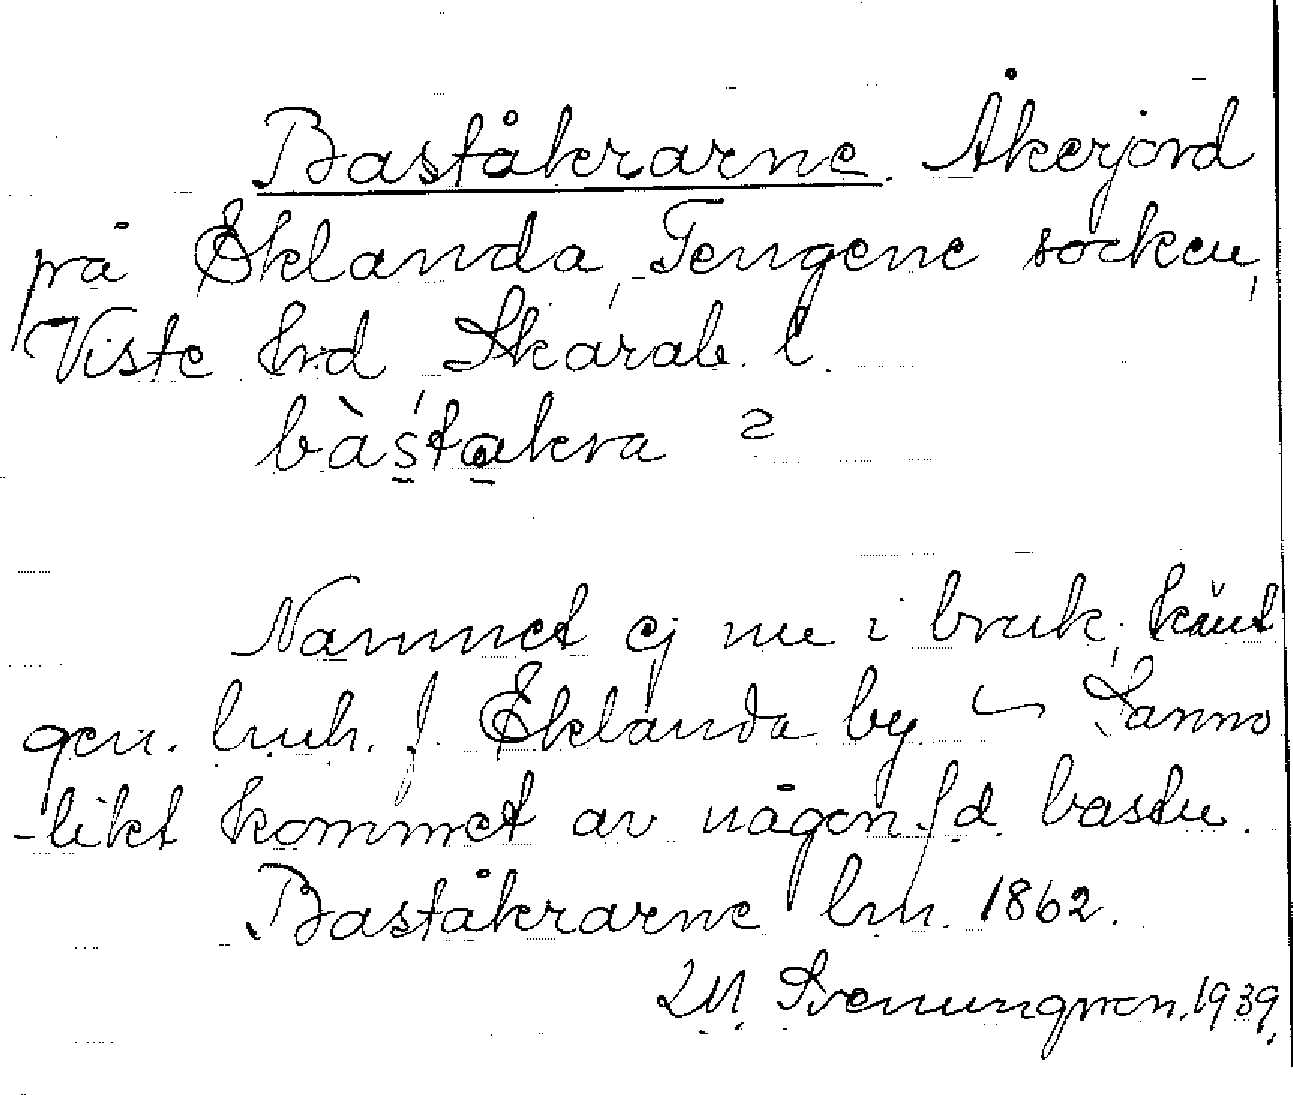 Baståkrarne. Åkerjord
på Eklanda, Tengene socken,
Viste hrd, Skarab. l.
bàstakra 2
Namnet ej nu i bruk, känt
gen. lmh. f. Eklanda by. Sanno
-likt kommet av någon f.d. bastu.
Baståkrarne lm. 1862.
Svenungsson. 1939.